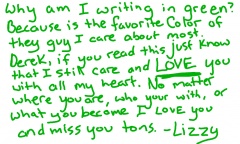 Why am I writing in green?
Because is the favorite color of
they guy I care about most.
Derek, if you read this, just know
that I still care and LOVE you
with all my heart. No matter
where you are, who your with, or
what you become I LOVE you
and miss you tons. -Lizzy